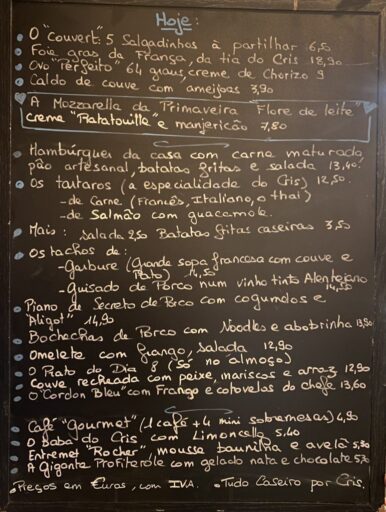 Hoje:
O "Couvert": 5 Salgadinhos à partilhar 6,50
Foie gras de França, da tia do Cris 18,90
Ovo "Perfeito" 64 graus, creme de Chorizo 9
Caldo de couve com ameijoas 3,90
A Mozzarella da Primaveira "Flore de leite"
creme "Ratatouille" e manjericão 7,80
Hambúrguer da casa com carne maturada,
pão artesanal, batatas fritas e salada 13,40.
Os tartaros (a especialidade do Cris) 12,50.
- de Carne (Francês, Italiano, o thai)
- de Salmão com guacamole.
Mais: salada 2,50 Batatas fritas caseiras 3,50
Os tachos de:
- Garbure (Grande sopa francesa com couve e
Pato) 14,50
- Guisado de Porco num vinho tinto Alentejano
14,50
Piano de Secreto de Porco com cogumelos e
Aligot" 14,90
Bochechas de Porco com Noodles e abobrinha 13,90
Omelete com frango, salada 12,90
O Prato do Dia 8 (Só no almoço)
Couve recheada com peixe, mariscos e arroz 12,90
O "Cordon Bleu" com Frango e cotovelos do chefe 13,60
Café "Gourmet" (1 café + 4 mini sobremesas) 4,90
O Baba do Cris com Limoncello 5,40
Entremet "Rocher" mousse baunilha e avelã 5,90
A Gigante Profiterole com gelado nata e chocolate 5,70
.Preços em €uros, com IVA. .Tudo Caseiro por Cris.